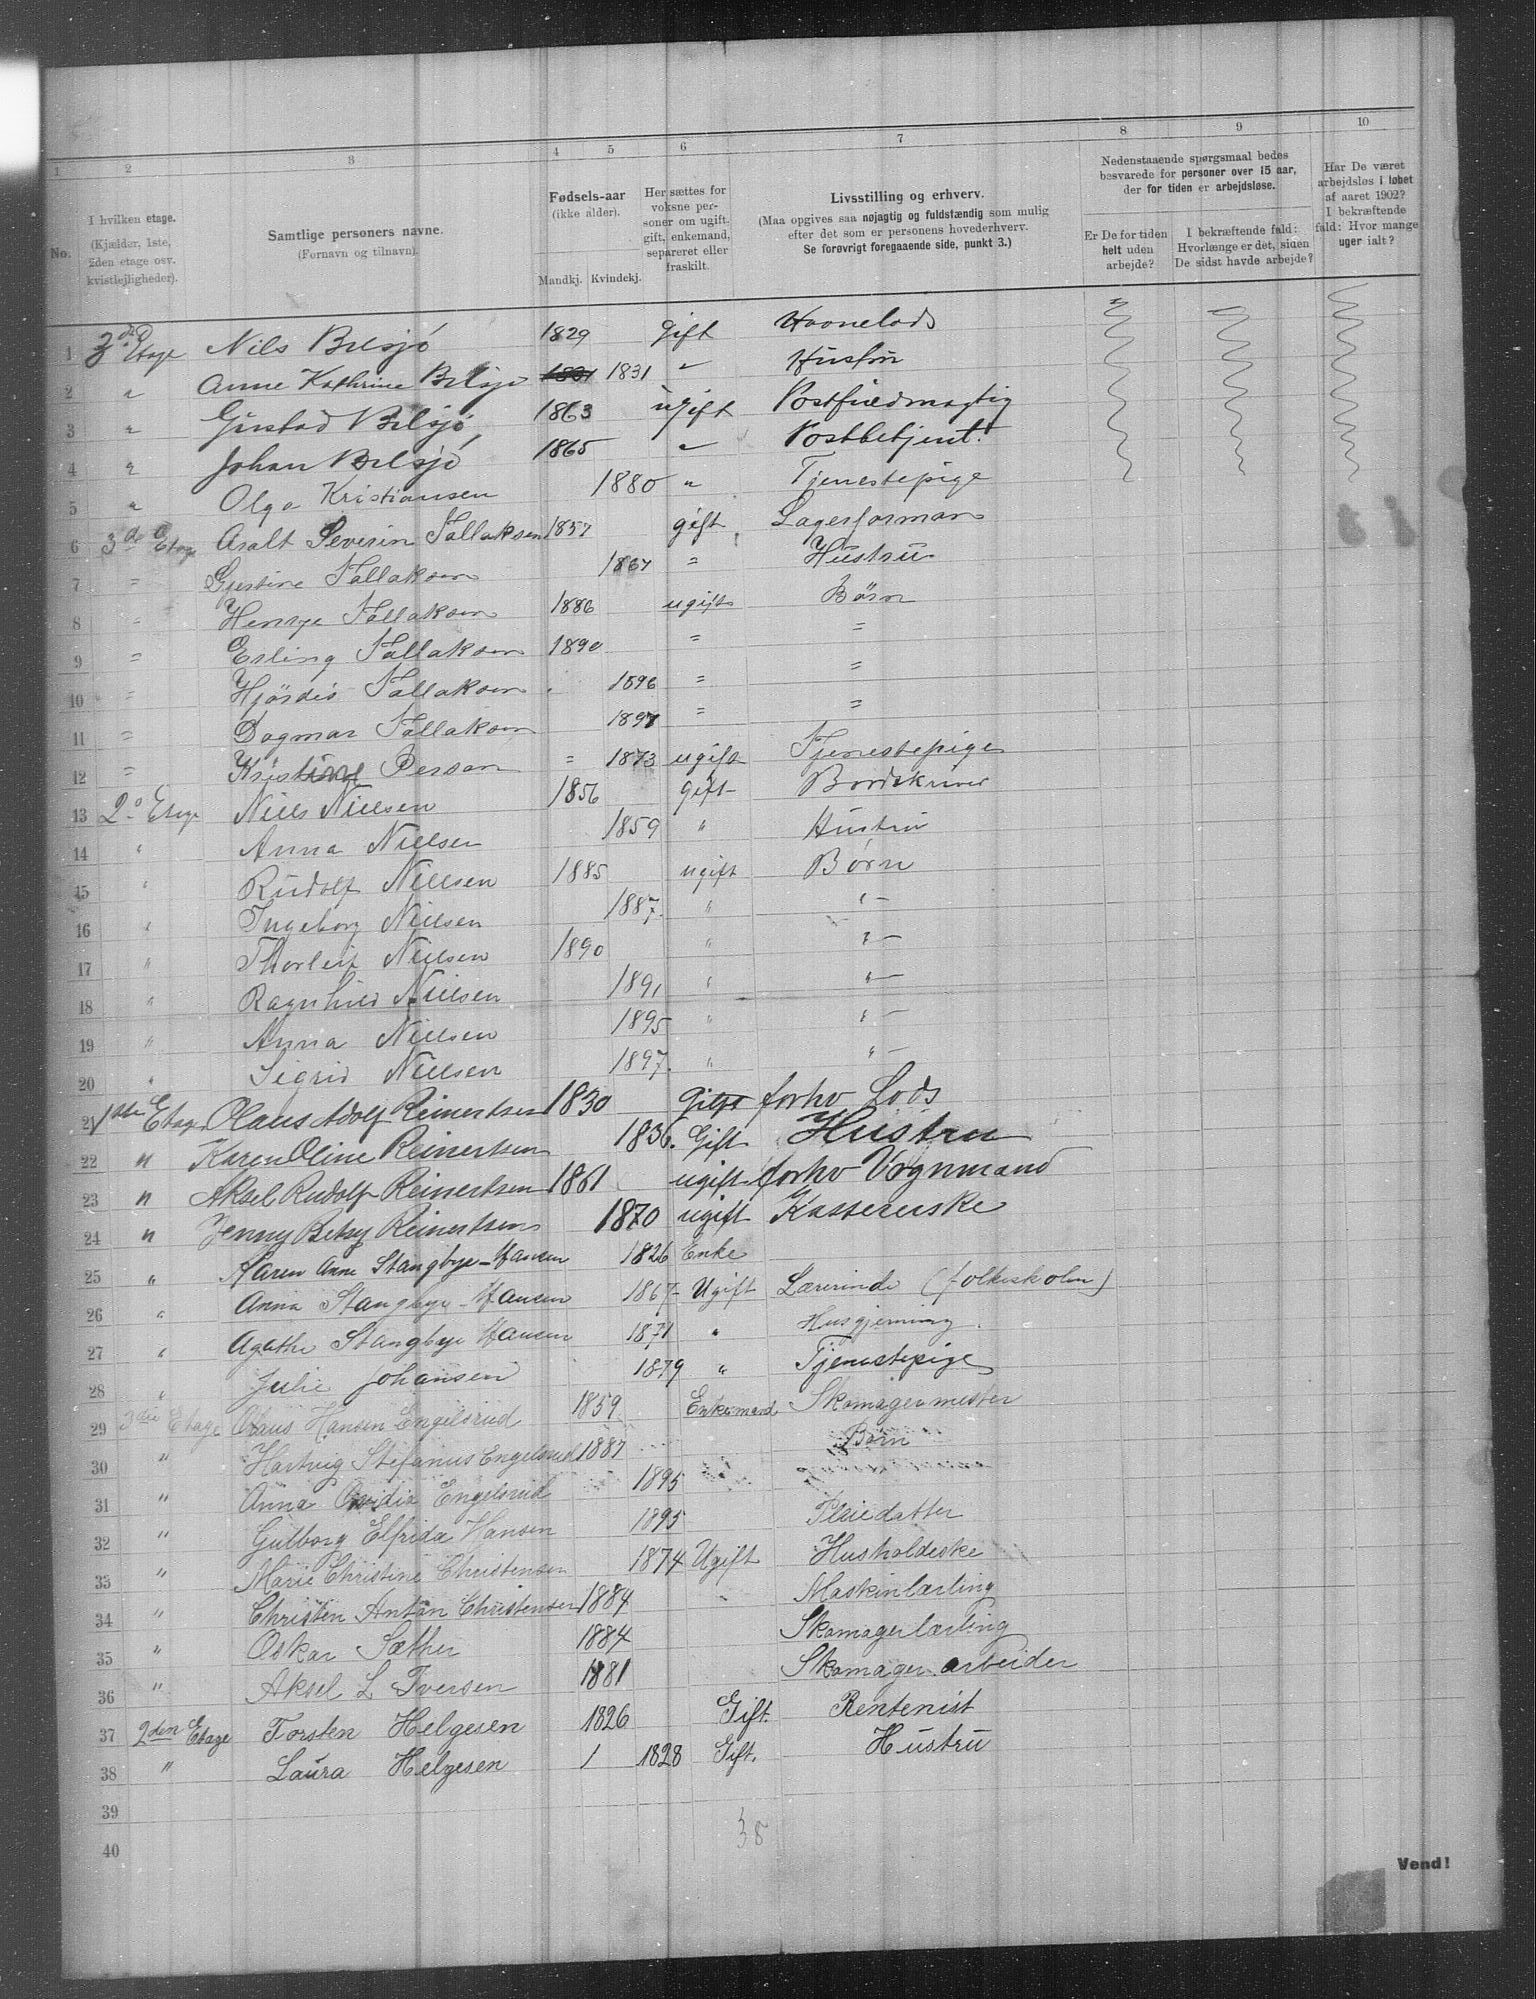 1 2 3 4 5 6 7 8 9 10
No.
I hvilken etage. (Kjælder, 1ste, 2den etage osv. kvistlejligheder).
Samtlige personers navne. (Fornavn og tilnavn).
Fødsels-aar (ikke alder). Mandkj. Kvindekj.
Her sættes for voksne personer om ugift, gift, enkemand, separeret eller fraskilt.
Livsstilling og erhverv. (Maa opgives saa nøjagtig og fuldstændig som mulig efter det som er personens hovederhverv. Se forøvrigt foregaaende side, punkt 3.)
Nedenstaaende spørgsmaal bedes besvarede for personer over 15 aar, der for tiden er arbejdsløse.
Er De for tiden helt uden arbejde?
I bekræftende fald: Hvorlænge er det, siden De sidst havde arbejde?
Har De været arbejdsløs i løbet af aaret 1902? I bekræftende fald: Hvor mange uger ialt?
1 3die Etage Nils Bilsjø 1829 gift Havnelods
2 " Anne Kathrine Bilsjø 1831 1831 " Husfru
3 " Gustad Bilsjø 1863 ugift Postfuldmægtig
4 " Johan Bilsjø 1865 " Postbetjent
5 " Olga Kristiansen 1880 " Tjenestepige
6 3die Etage Aralt Severin Tallaksen 1857 gift Lagerformand
7 " Gjertine Tallaksen 1867 " Hustru
8 " Henrye Tallaksen 1886 ugift Børn
9 " Erling Tallaksen 1890 " "
10 " Hjørdis Tallaksen 1896 " "
11 " Dagmar Tallaksen 1897 " "
12 " Kristine Person " 1873 ugift Tjenestepige
13 2. Etage Niels Nielsen 1856 gift Bordskriver
14 " Anna Nielsen 1859 " Hustru
15 " Rudolf Nielsen 1885 ugift Børn
16 " Ingeborg Nielsen 1887. " "-
17 " Thorleif Nielsen 1890 " "-
18 " Ragnhild Nielsen 1891 " "-
19 " Anna Nielsen 1895 " "-
20 " Sigrid Nielsen 1897. " "-
21 1ste Etage Olaus Adolf Reinertsen 1830 Gift forhv Lods
22 " Karen Oline Reinertsen 1836. Gift Hustru
23 " Aksel Rudolf Reinertsen 1861 ugift forhv Vognmand
24 " Jenny Betsy Reinertsen 1870 ugift Kassererske
25 " Karen Anne Stangbye-Hansen 1826 Enke
26 " Anna Stangbye-Hansen 1867- Ugift Lærerinde (folkeskolen)
27 " Agathe Stangbye Hansen 1871 " Husgjerning.
28 " Julie Johansen 1879 " Tjenestepige
29 3die Etage Olaus Hansen Engelsrud 1859 Enkemand Skomagermester
30 " Hartvig Stefanus Engelsrud 1887 Børn
31 " Anna Ovidia Engelsrud 1895
32 " Gulborg Elfrida Hansen 1895 Pleiedatter
33 " Marie Christine Christensen 1874 Ugift Husholderske
34 " Christen Anton Christensen 1884 " Maskinlærling
35 " Oskar Sæther 1884 Skomagerlærling
36 " Aksel L Iversen 1881 Skomager arbeider
37 2den Etage Torsten Helgesen 1826 Gift. Rentenist
38 " Laura Helgesen 1 1828 Gift. Hustru
39
40
38
Vend!